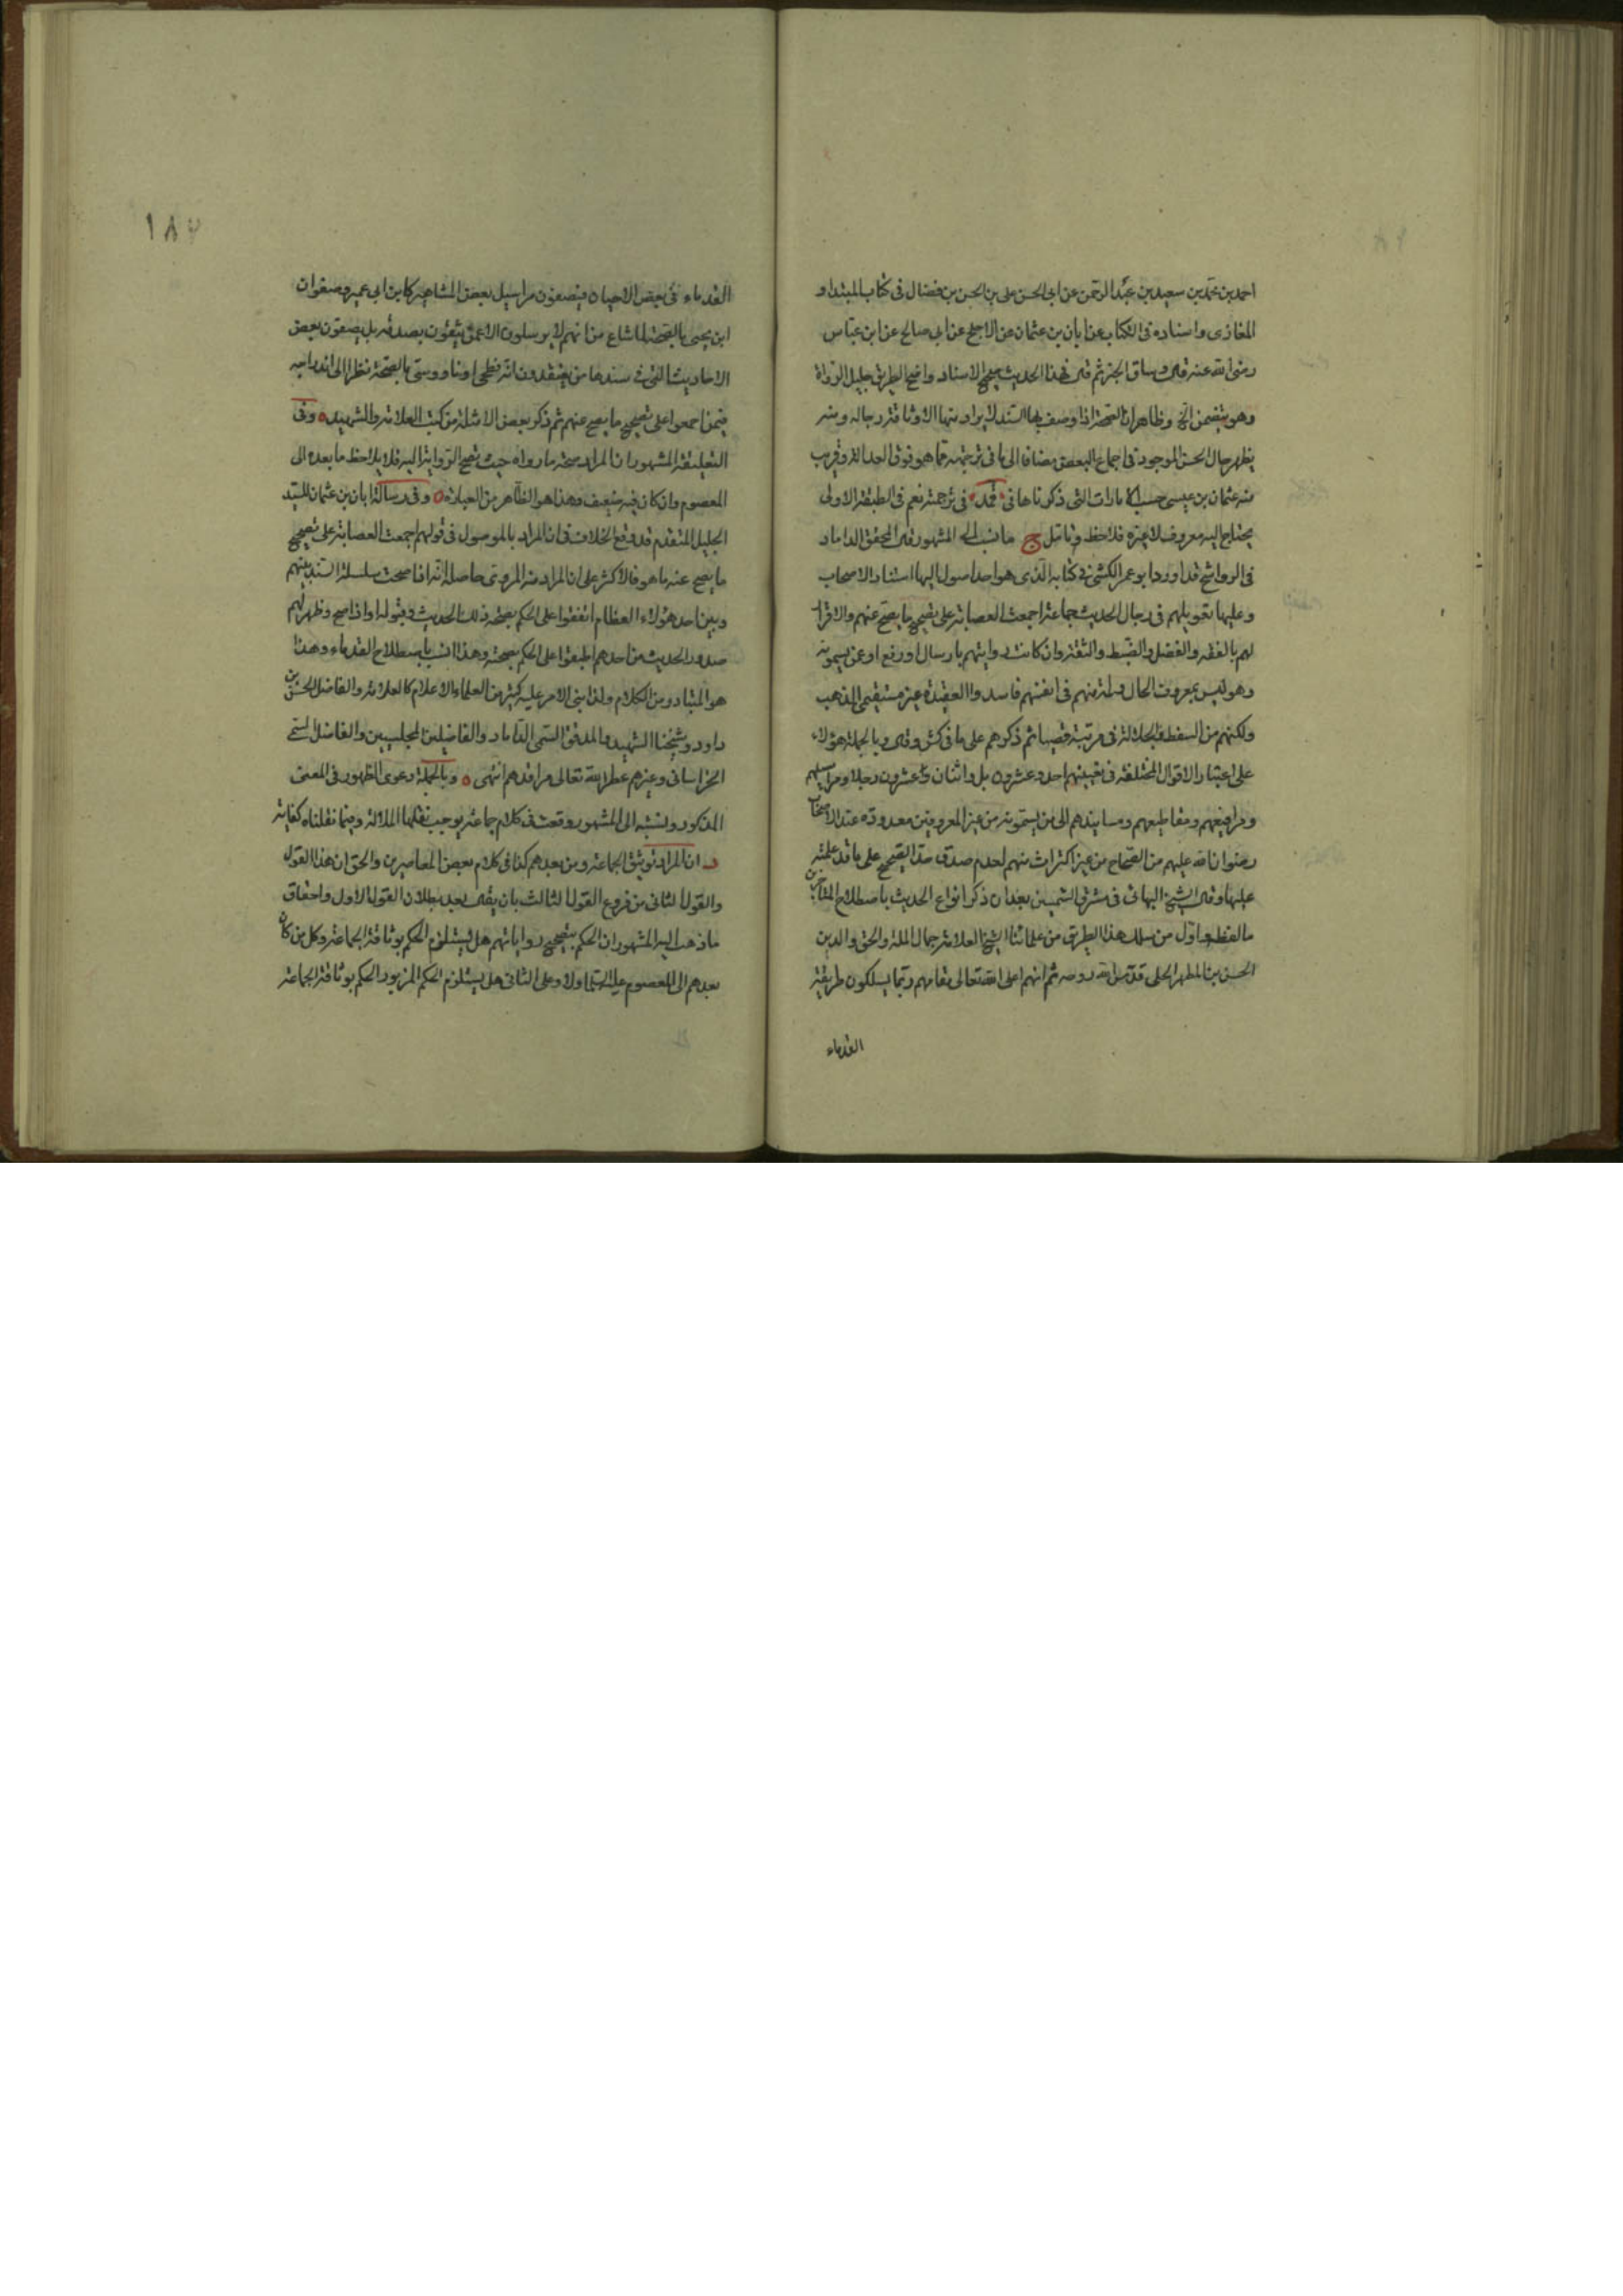 احمد بن محمد بن سعيد بن عبد الرحمن عن ابى الحسن على بن الحسن بن فضال فى كتاب المبتداء و
المغازى واسناده فى الكتاب عن ابان بن عثمان عن الاجلح عن ابى صالح عن ابن عباس
رضى الله عنه قال وساق الخبر ثم قال فهذا الحديث صحيح الاسناد واضح الطريق جليل الرواة
وهو يتضمن الخ وظاهر ان الصحة اذا وصف بها السند لا يراد منها الا وثاقة رجاله ومنه
يظهر حال الحسن الموجود فى اجماع البعض مضافا الى ما فى ترجمته مما هو فوق العدالة وقريب
منه عثمان بن عيسى حسب الامارات التى ذكرناها فى في ترجمته نعم فى الطبقة الاولى
يحتاج اليه معروف لا غيره فلاحظ وتأمل ج ما نسب الى المشهور قال المحقق الداماد
فى الرواشح قد اورد ابو عمر الكشى فى كتابه الذى هو احد اصول اليها استناد الاصحاب
وعليها تعويلهم فى رجال الحديث جماعة اجمعت العصابة على تصحيح ما يصح عنهم والاقرار
لهم بالفقه والفضل والضبط والثقة وان كانت روايتهم بارسال او رفع او عن يسمونه
وهو ليس بمعروف الحال ولمة منهم فى انفسهم فاسدوا العقيدة غير مستقيمى المذهب
ولكنهم من السفط والجلالة فى مرتبة قصيا ثم ذكرهم على ما فى كش وقال وبالجملة هؤلاء
على اعتبار الاقوال المختلفة فى تعيينهم احد وعشرون بل واثنان وعشرون رجلا ومراسيلهم
ومرافيعهم ومقاطيعهم ومسانيدهم الى من يسمونه من غير المعروفين معدودة عند الاصحاب
رضوان الله عليهم من الصحاح من غير اكتراث منهم لعدم صدق حد الصحيح على ما قد علمته
عليها وقال الشيخ البهائى فى مشرق الشمسين بعد ان ذكر انواع الحديث باصطلاح المتأخرين
ما لفظه واول من سلك هذا الطريق من علمائنا الشيخ العلامة جمال الملة والحق والدين
الحسن بن المطهر الحلى قدس الله روحه ثم انهم اعلى الله تعالى مقامهم ربما يسلكون طريقة
القدماء
١٨٧
القدماء فى بعض الاحيان فيصفون مراسيل بعض المشاهير كابن ابى عمير وصفوان
ابن يحيى بالصحة لما شاع من انهم لا يرسلون الا عمن يثقون بصدقه بل يصفون بعض
الاحاديث التى فى سندها من يعتقدون انه فطحى او ناووسى بالصحة نظرا الى اندراجه
فيمن اجمعوا على تصحيح ما يصح عنهم ثم ذكر بعض الامثلة من كتب العلامة والشهيد وفى
التعليقة المشهور ان المراد صحة ما رواه حيث تصح الرواية اليه فلا يلاحظ ما بعده الى
المعصوم وان كان فيه ضعيف وهذا هو الظاهر من العبارة وفى رسالة ابان بن عثمان للسيد
الجليل المتقدم قد وقع الخلاف فى ان المراد بالموصول فى قولهم اجمعت العصابة على تصحيح
ما يصح عنه ما هو فالاكثر على ان المراد منه المروى حاصله انه اذا صحت سلسلة السند بينهم
وبين احد هؤلاء العظام اتفقوا على الحكم بصحة ذلك الحديث وقبوله او اذا صح وظهر لهم
صدور الحديث من احدهم اطبقوا على الحكم بصحته وهذا انسب باصطلاح القدماء وهذا
هو المتبادر من الكلام ولذا بنى الامر عليه كثير من العلماء الاعلام كالعلامة والفاضل الحسن بن
داود وشيخنا الشهيد والمدقق السمى الداماد والفاضلين المجلسيين والفاضل السمى
الخراسانى وغيرهم عطر الله تعالى مراقدهم انتهى وبالجملة دعوى الظهور فى المعنى
المذكور ونسبته الى المشهور وقعت فى كلام جماعة يوجب نقلها الملالة وفيما نقلناه كفاية
د ان المراد توثيق الجماعة ومن بعدهم كذا فى كلام بعض المعاصرين والحق ان هذا القول
والقول الثانى من فروع القول الثالث بان يقال بعد بطلان القول الاول واحقاق
ما ذهب اليه المشهور ان الحكم بتصحيح رواياتهم هل يستلزم الحكم بوثاقة الجماعة وكل من كان
بعدهم الى المعصوم عليه السلام اولا وعلى الثانى هل يستلزم الحكم المزبور الحكم بوثاقة الجماعة